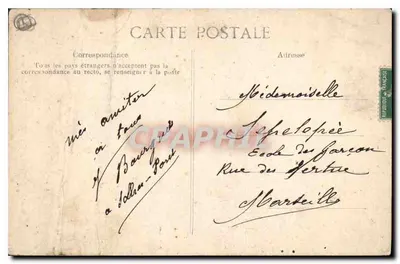 CARTE POSTALE
Correspondance
Tous les pays étrangers n'acceptent pas la
correspondance au recto, se renseigner à la poste
Adresse
mes amitiés
à tous
Bourgues
à
CPARAMA
Mademoiselle
Ecole de Garçon
Rue des Vertus
Marseille